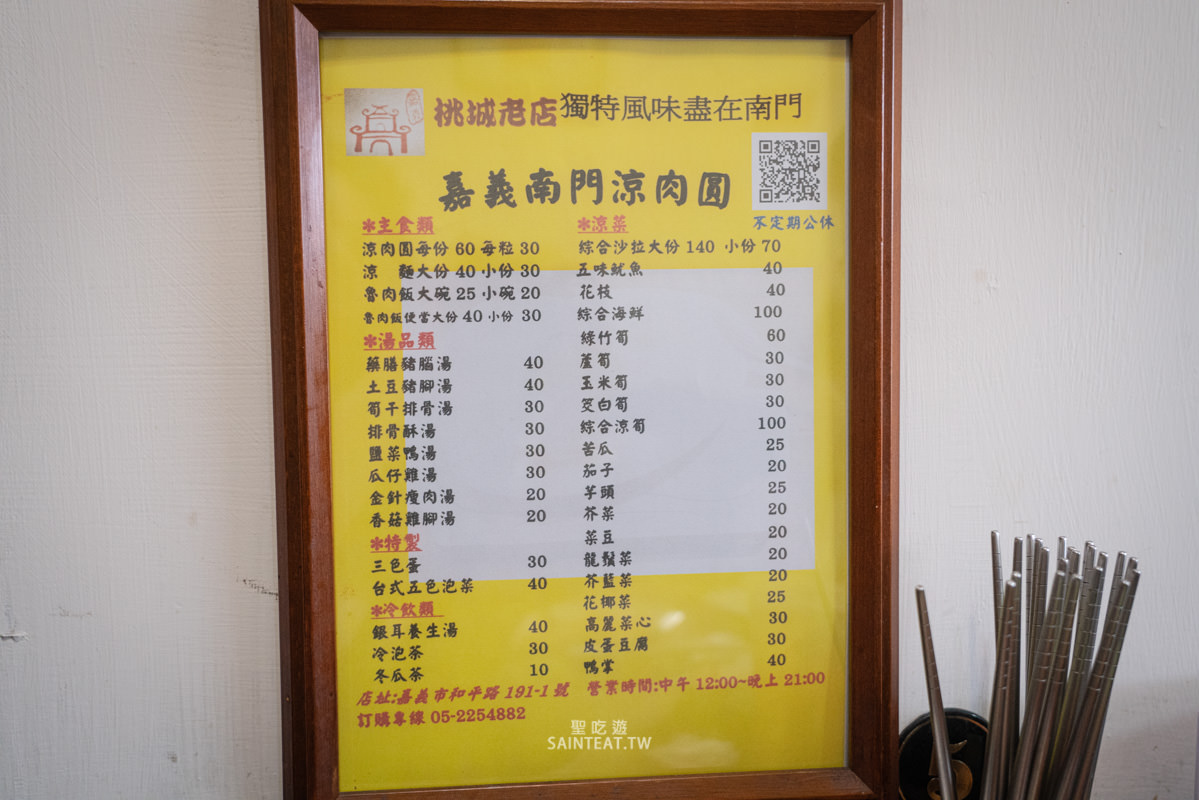 桃城老店 獨特風味盡在南門
嘉義南門涼肉圓
不定期公休
*主食類
涼肉圓每份 60 每粒 30
涼 麵大份 40 小份 30
魯肉飯大碗 25 小碗 20
魯肉飯便當大份 40 小份 30
*湯品類
藥膳豬腦湯 40
土豆豬腳湯 40
筍干排骨湯 30
排骨酥湯 30
鹽菜鴨湯 30
瓜仔雞湯 30
金針瘦肉湯 20
香菇雞腳湯 20
*特製
三色蛋 30
台式五色泡菜 40
*冷飲類
銀耳養生湯 40
冷泡茶 30
冬瓜茶 10
*涼菜
綜合沙拉大份 140 小份 70
五味魷魚 40
花枝 40
綜合海鮮 100
綠竹筍 60
蘆筍 30
玉米筍 30
茭白筍 30
綜合涼筍 100
苦瓜 25
茄子 20
芋頭 25
芥菜 20
菜豆 20
龍鬚菜 20
芥藍菜 20
花椰菜 25
高麗菜心 30
皮蛋豆腐 30
鴨掌 40
店址:嘉義市和平路 191-1 號 營業時間:中午 12:00~晚上 21:00
訂購專線 05-2254882
聖吃遊
SAINTEAT.TW